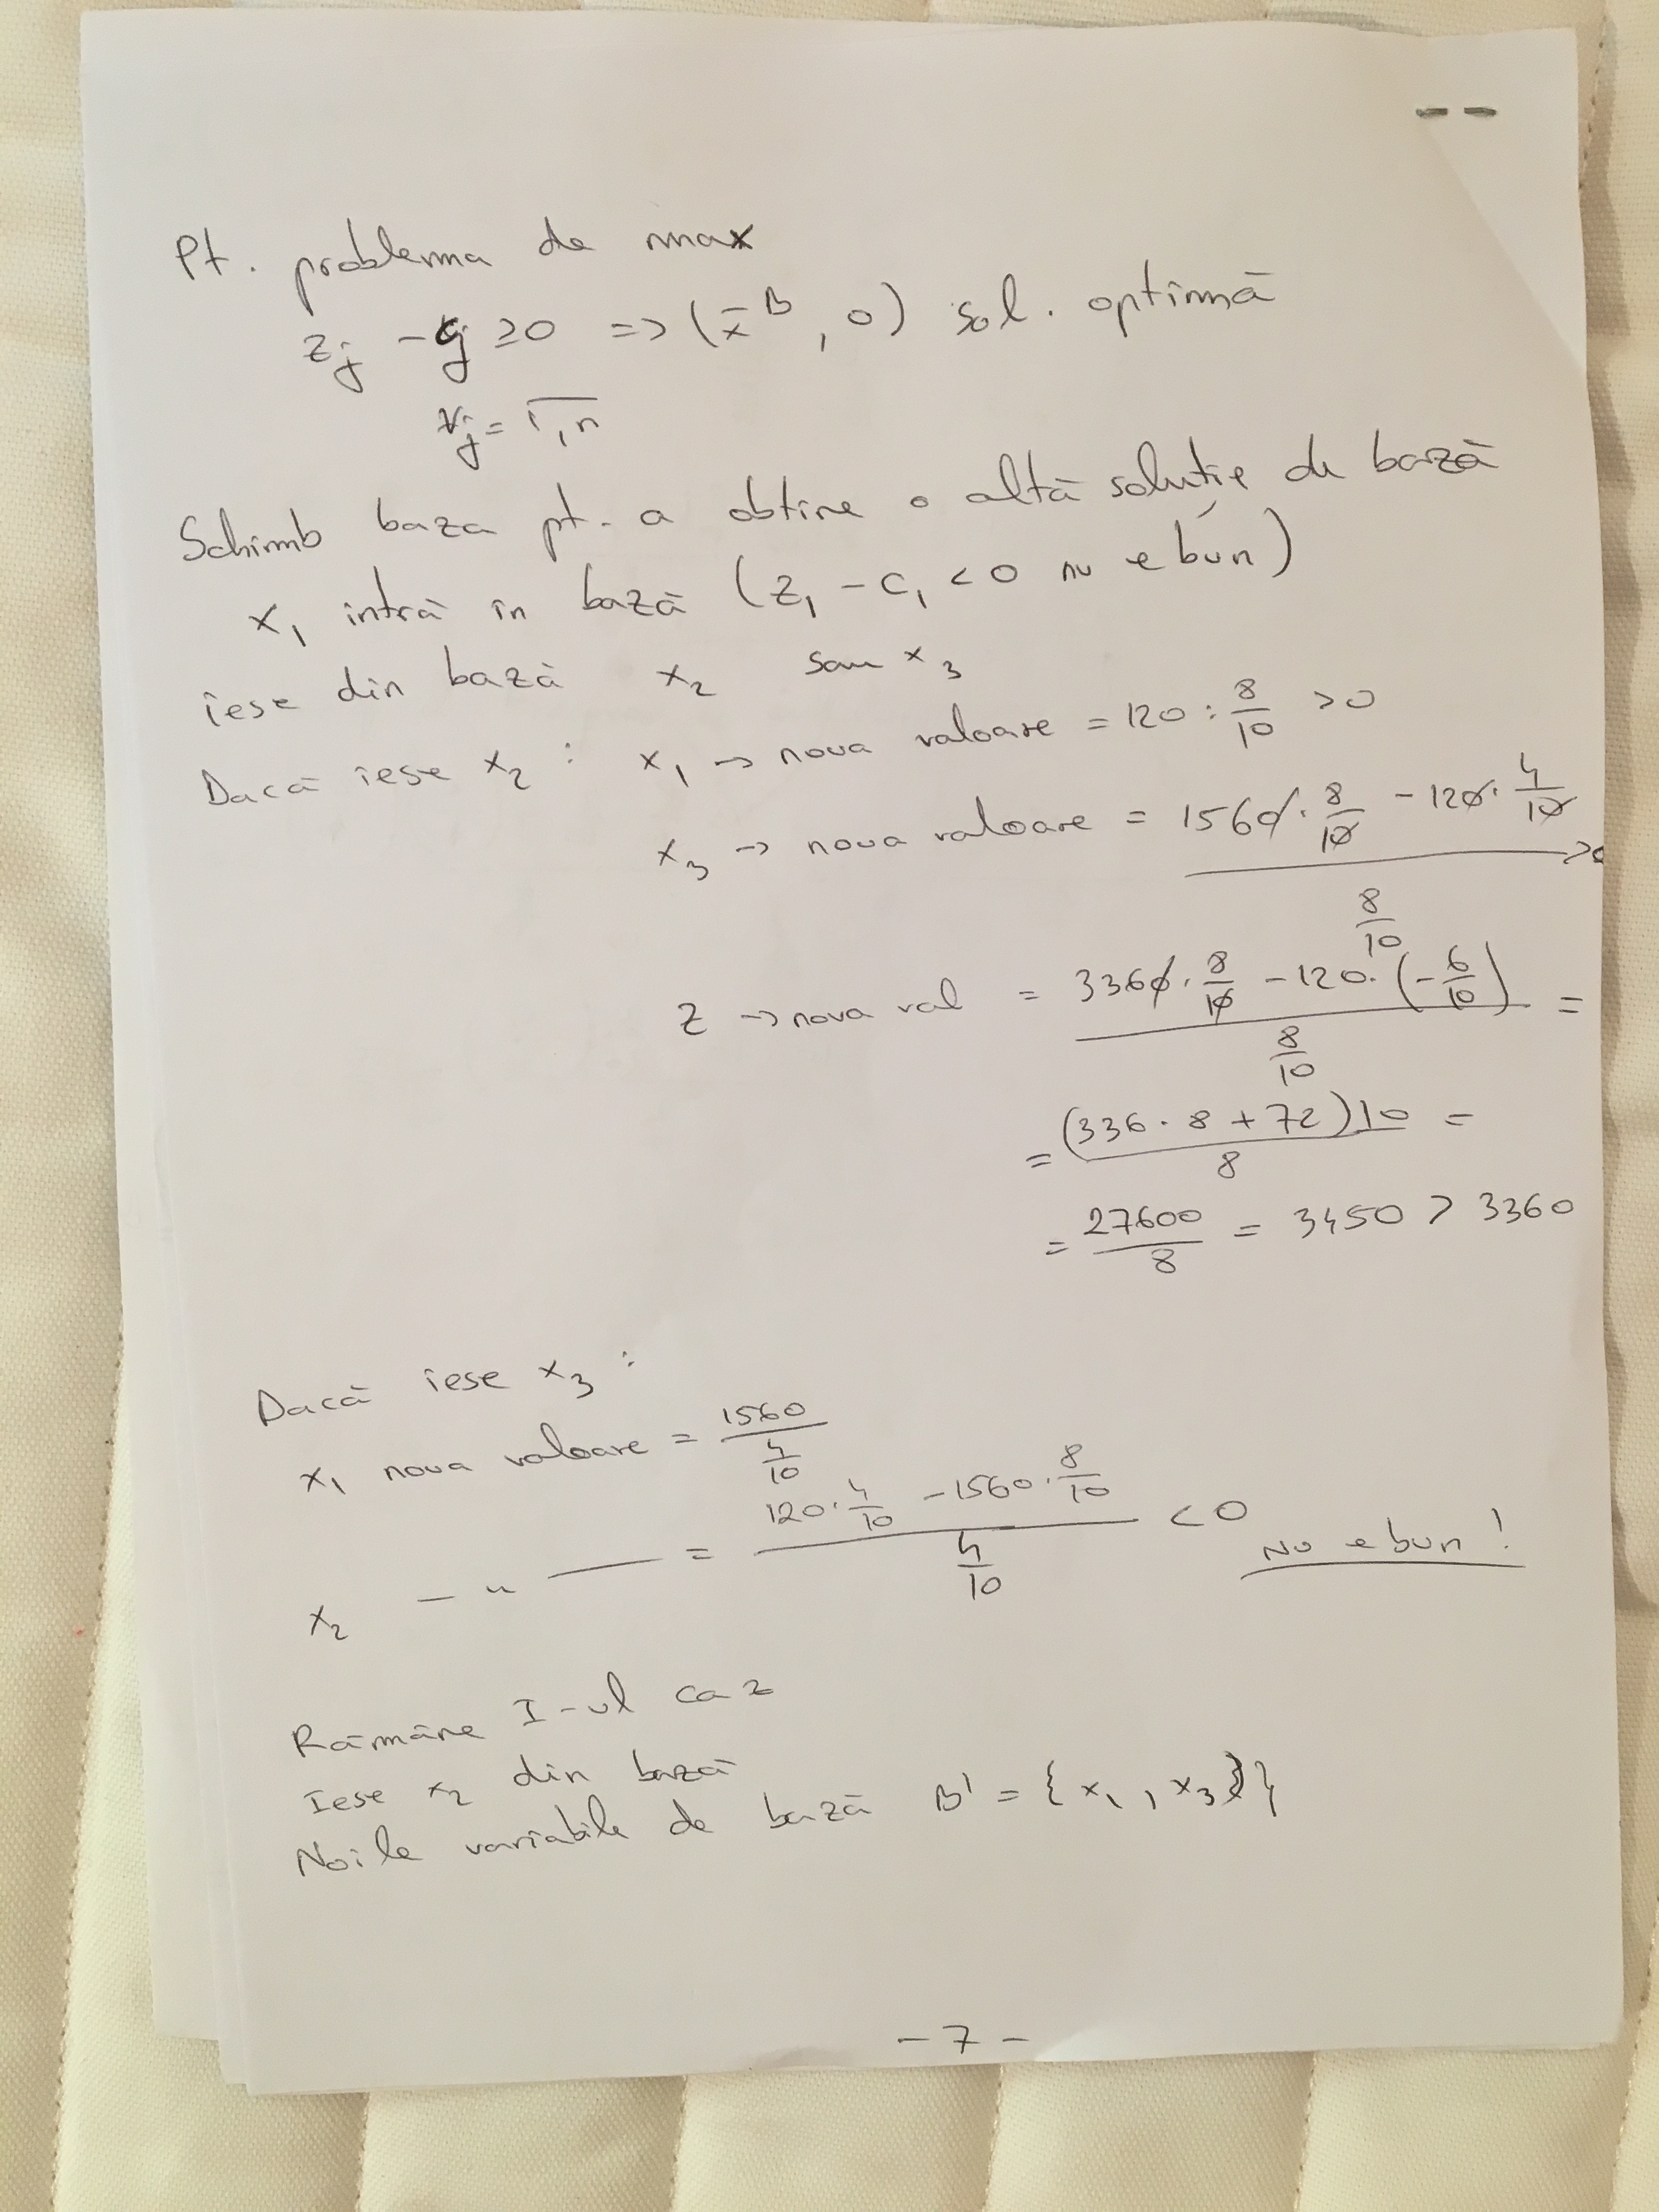 Pt. problema de max
zj - cj ≥ 0 => (x̄ᴮ, 0) sol. optimă
∀j = 1,n
Schimb baza pt. a obține o altă soluție de bază
x₁ intră în bază (z₁ - c₁ < 0 nu e bun)
iese din bază x₂ sau x₃
Dacă iese x₂ : x₁ → noua valoare = 120 : 8/10 > 0
x₃ → noua valoare = (1560 · 8/10 - 120 · 4/10) / (8/10) > 0
z → noua val = (3360 · 8/10 - 120 · (-6/10)) / (8/10) =
= (336 · 8 + 72)10 / 8 =
= 27600/8 = 3450 > 3360
Dacă iese x₃ :
x₁ noua valoare = 1560 / (4/10)
x₂ — " — = (120 · 4/10 - 1560 · 8/10) / (4/10) < 0 Nu e bun!
Rămâne I-ul caz
Iese x₂ din bază
Noile variabile de bază B' = {x₁, x₃}
- 7 -